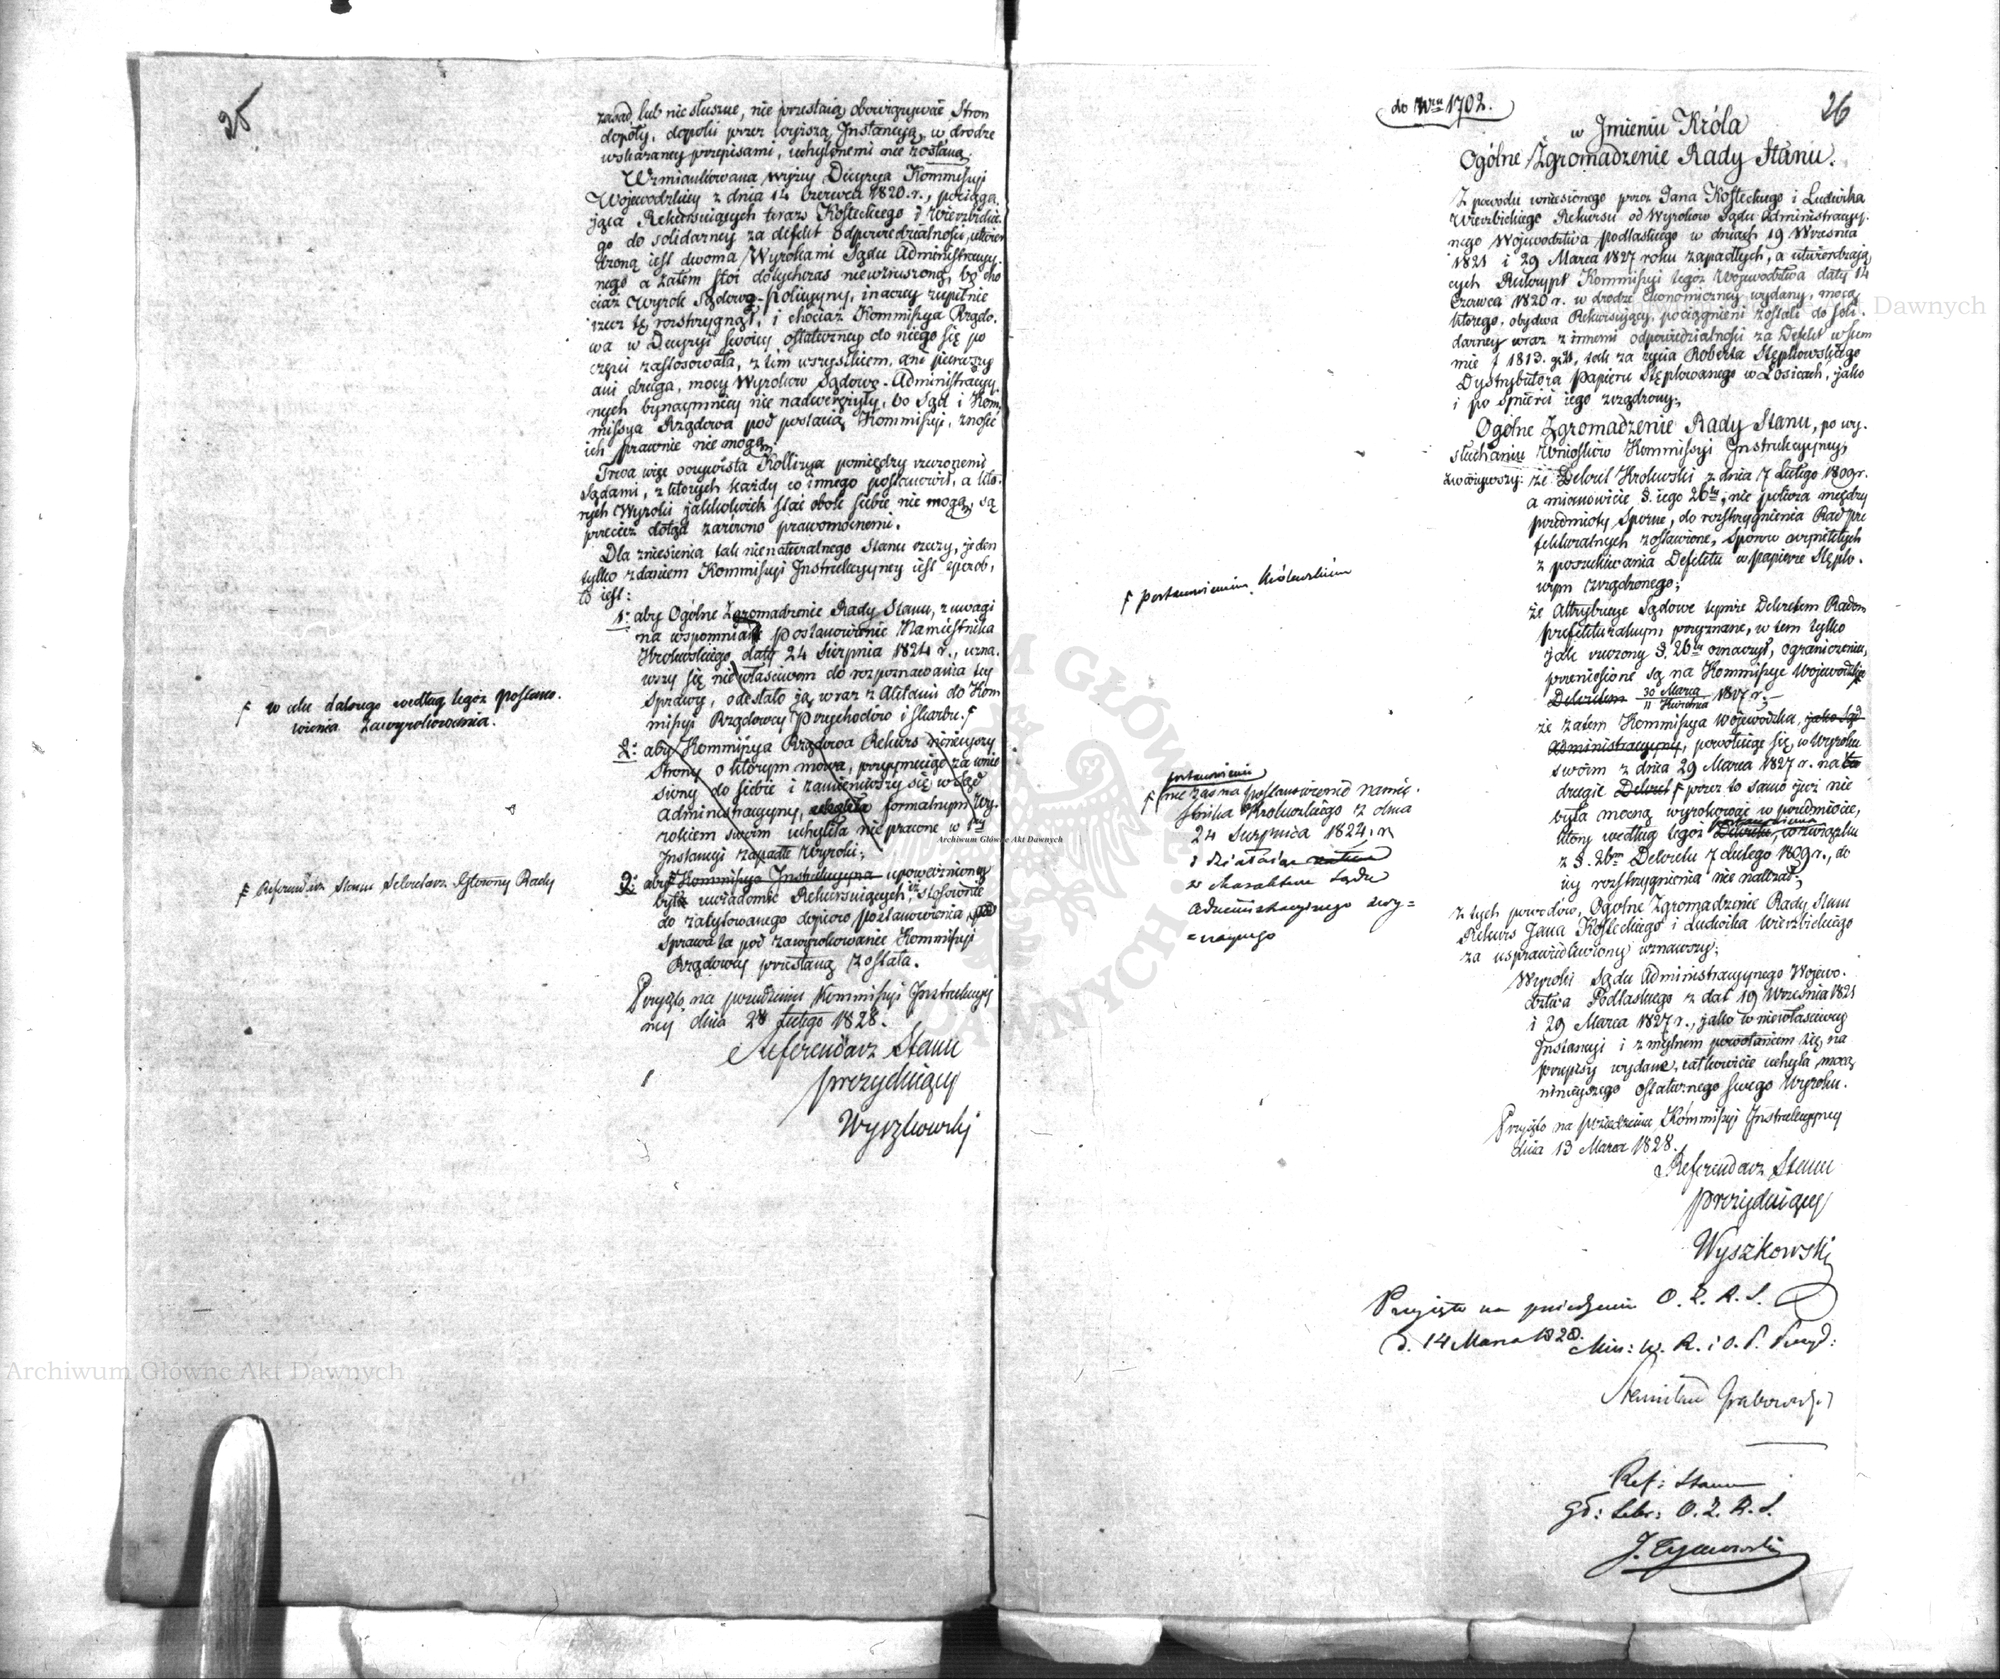 25
zasad, lub niesłuszne, nie przestaią obowiązywać Stron
dopóty, dopóki przez wyższą Instancyą, w drodze
wskazaney przepisami, uchylonemi nie zostaną.
Wzmiankowana wyżey Decyzya Kommissyi
Woiewodzkiey z dnia 14 Czerwca 1820 r., pociąga-
iąca Rekursuiących teraz Kosteckiego i Wierzbickie-
go do solidarney za defekt odpowiedzialności, utwier-
dzoną iest dwoma Wyrokami Sądu Administracyy-
nego a zatem stoi dotychczas niewzruszoną, bo cho-
ciaż Wyrok Sądowo-Policyyny, inaczey zupełnie
rzecz tę rozstrzygnął, i chociaż Kommissya Rządo-
wa w Decyzyi swoiey ostateczney do niego się po
części zastosowała, z tem wszystkiem, ani pierwszy
ani druga, mocy Wyroków Sądowo-Administracyy-
nych bynaymniey nie nadwerężyły, bo Sąd i Kom-
missya Rządowa pod postacią Kommissyi, znosić
ich prawnie nie mogą.
Trwa więc oczywista Kollizya pomiędzy rzeczonemi
Sądami, z których każdy co innego postanowił, a któ-
rych Wyroki jakkolwiek stać obok siebie nie mogą, są
przecież dotąd zarówno prawomocnemi.
Dla zniesienia tak nienaturalnego Stanu rzeczy, jeden
tylko zdaniem Kommissyi Instrukcyyney iest sposób,
to iest:
1: aby Ogólne Zgromadzenie Rady Stanu, z uwagi
na wspomniane Postanowienie Namiestnika
Królewskiego daty 24 Sierpnia 1824 r., uzna-
wszy się niewłaściwem do rozpoznawania tey
Sprawy, odesłało ją wraz z Aktami do Kom
missyi Rządowey Przychodów i Skarbu. F
F w celu dalszego według tegoż postano-
wienia zawyrokowania.
2: aby Kommissya Rządowa Rekurs ninieyszy
Strony o którym mowa, przyjmuiąc za wnie
siony do siebie i zamieniwszy się w Sąd
Administracyyny, formalnym Wy-
rokiem swoim uchyliła nie prawne w 1ey
Instancyi zapadłe Wyroki;
2: aby F Kommissya Instrukcyyna upoważniony
był uwiadomić Rekursuiących, iż stosownie
do zacytowanego dopiero Postanowienia,
Sprawa ta pod zawyrokowanie Kommissyi
Rządowey przesłaną została.
F Referendarz Stanu Sekretarz Główny Rady
Przyięto na posiedzeniu Kommissyi Instrukcyy
ney dnia 28 Lutego 1828.
Referendarz Stanu
prezyduiący
Wyszkowski
26
do Nru 1702.
w Imieniu Króla
Ogólne Zgromadzenie Rady Stanu.
Z powodu wniesionego przez Jana Kosteckiego i Ludwika
Wierzbickiego Rekursu od Wyroków Sądu Administracyy-
nego Woiewództwa Podlaskiego w dniach 19 Września
1821 i 29 Marca 1827 roku zapadłych, a utwierdzaią
cych Reskrypt Kommissyi tegoż Woiewództwa daty 14
Czerwca 1820 r. w drodze Ekonomiczney wydany, mocą
którego, obydwa Rekursuiący, pociągnieni zostali do soli-
darney wraz z innemi odpowiedzialności za Defekt w sum
mie f 1813. tak za życia Roberta Stępkowskiego
Dystrybutora Papieru Stęplowanego w Łosicach, jako
i po śmierci iego zrządzony;
Ogólne Zgromadzenie Rady Stanu, po wy-
słuchaniu Wniosków Kommissyi Instrukcyyney,
zważywszy: że Dekret Królewski z dnia 7 Lutego 1809 r.
a mianowicie §. iego 26ty, nie położa między
przedmioty sporne, do rozstrzygnienia Rad pre
fekturalnych zostawione, sporów wynikłych
z poszukiwania Defektu w papierze Stęplo-
wym zrządzonego;
że Attrybucye Sądowe tymże Dekretem Radom
prefekturalnym, przyznane, w tem tylko
jak rzeczony §. 26ty oznaczył, ograniczeniu,
przeniesione są na Kommissye Woiewodzkie
Dekretem 30 Marca / 11 Kwietnia 1817 r.;
F postanowieniem Królewskiem
że zatem Kommissya Woiewodzka, jako Sąd
Administracyyny, powołuiąc się, w Wyroku
swoim z dnia 29 Marca 1827 r. na to
drugie Dekret F przez to samo już nie
była mocną wyrokować w przedmiocie,
który według tegoż Dekretu, w związku
postanowienia
z §. 26tym Dekretu 7 Lutego 1809 r., do
iey rozstrzygnienia nie należał;
postanowienie
F nie zaś na Postanowienie Namie-
stnika Królewskiego z dnia
24 Sierpnia 1824. r.
i działaiąc
w charakterze Sądu
Administracyynego zwy=
=czaynego
z tych powodów, Ogólne Zgromadzenie Rady Stanu
Rekurs Jana Kosteckiego i Ludwika Wierzbickiego
za usprawiedliwiony uznawszy;
Wyroki Sądu Administracyynego Woiewó-
dztwa Podlaskiego z dat 19 Września 1821
i 29 Marca 1827 r., jako w niewłaściwey
Instancyi i z mylnem powołaniem się na
przepisy wydane, całkowicie uchyla mocą
ninieyszego ostatecznego swego Wyroku.
Przyięto na posiedzeniu Kommissyi Instrukcyyney
dnia 13 Marca 1828.
Referendarz Stanu
prezyduiący
Wyszkowski
Przyięto na posiedzeniu O. Z. R. S.
d. 14 Marca 1828.
Min: W. R. i O. P. Prezyd:
Stanisław Grabowski
Ref: Stanu
Gł: Sekr: O. Z. R. S.
J. Tymowski
Archiwum Główne Akt Dawnych
Archiwum Główne Akt Dawnych
Archiwum Główne Akt Dawnych